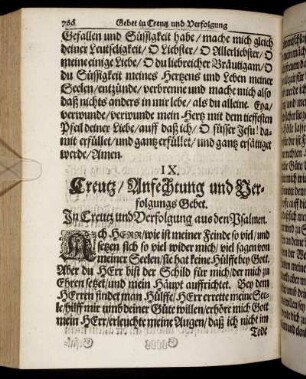 766 Gebet in Creutz und Verfolgung
Gefallen und Süssigkeit habe / mache mich gleich
deiner Leutseligkeit / O Liebster / O Allerliebster / O
meine einige Liebe / O du liebreicher Bräutigam / O
du Süssigkeit meines Hertzens und Leben meiner
Seelen / entzünde / verbrenne und mache mich also
daß nichts anders in mir lebe / als du alleine. Eya /
verwunde / verwunde mein Hertz mit dem tieffesten
Pfeil deiner Liebe / auff daß ich / O süsser Jesu! da-
mit erfüllet / und gantz erfüllet / und gantz ersättiget
werde / Amen.
IX.
Creutz / Anfechtung und Ver-
folgungs Gebet.
In Creutz und Verfolgung aus den Psalmen.
ACh HErr / wie ist meiner Feinde so viel / und
setzen sich so viel wider mich / viel sagen von
meiner Seelen / sie hat keine Hülffe bey Gott.
Aber du HErr bist der Schild für mich / der mich zu
Ehren setzet / und mein Häupt auffrichtet. Bey dem
HErren findet man Hülffe / HErr errette meine See-
le / hilff mir umb deiner Güte willen / erhöre mich Gott
mein HErr / erleuchte meine Augen / daß ich nicht im
Tode